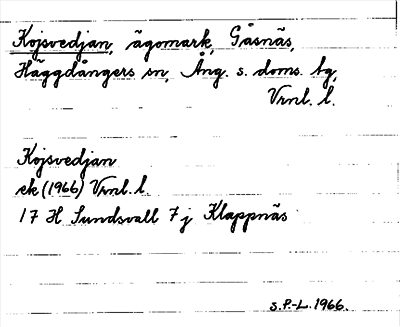 Kojsvedjan, ägomark, Gåsnäs,
Häggdångers sn, Ång. s. doms. tg,
Vrnl. l.
Kojsvedjan
ek (1966) Vrnl. l.
17 H Sundsvall 7 j Klappnäs
S.P.-L. 1966.